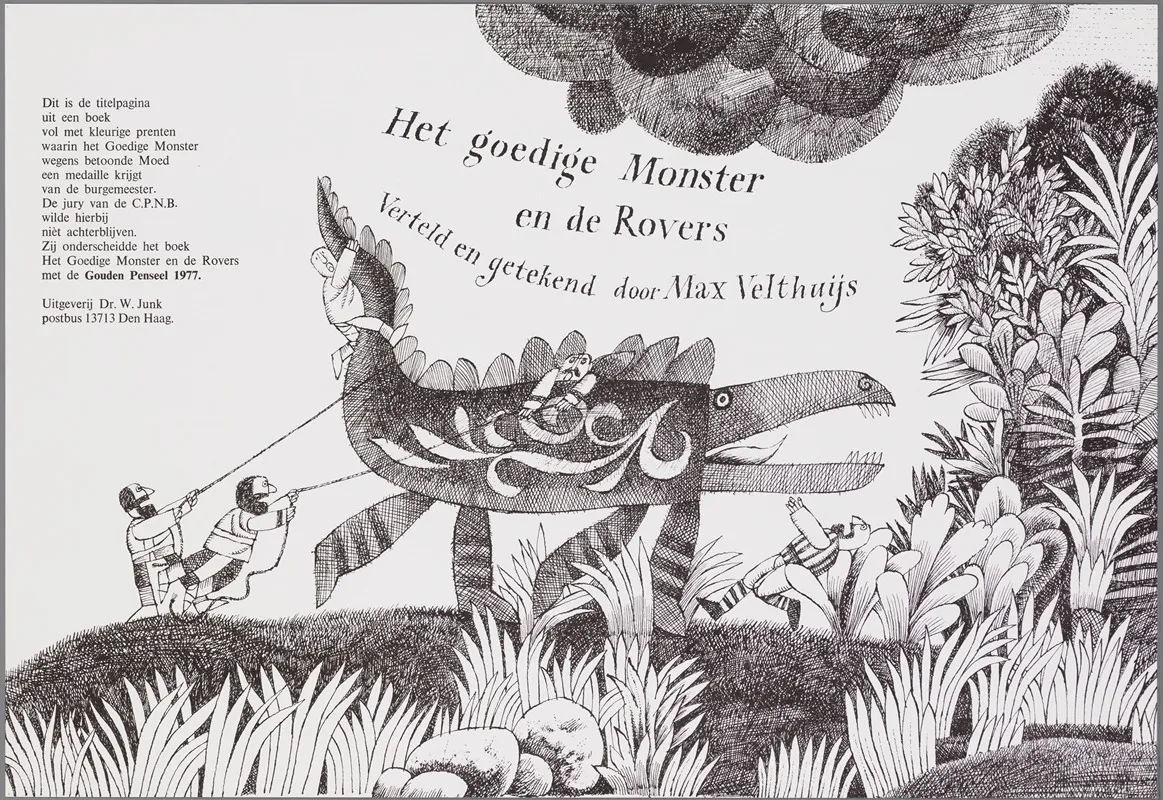 Dit is de titelpagina
uit een boek
vol met kleurige prenten
waarin het Goedige Monster
wegens betoonde Moed
een medaille krijgt
van de burgemeester.
De jury van de C.P.N.B.
wilde hierbij
nièt achterblijven.
Zij onderscheidde het boek
Het Goedige Monster en de Rovers
met de Gouden Penseel 1977.
Uitgeverij Dr. W. Junk
postbus 13713 Den Haag.
Het goedige Monster
en de Rovers
Verteld en getekend door Max Velthuijs